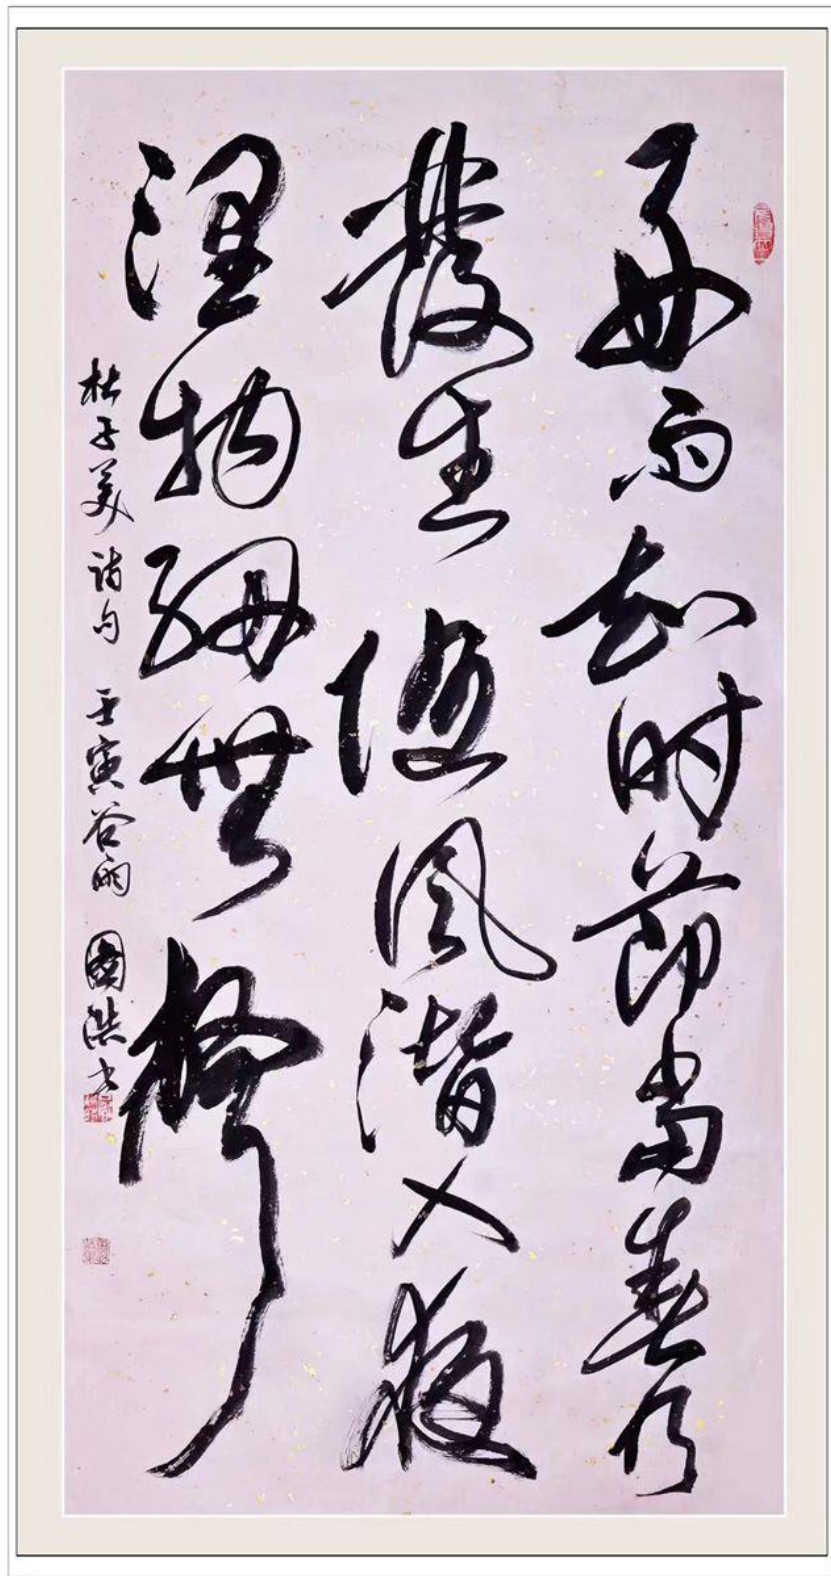 好雨知时節當春乃
發生随風潜入夜
潤物細無聲
杜子美诗句 壬寅谷雨 國洪书